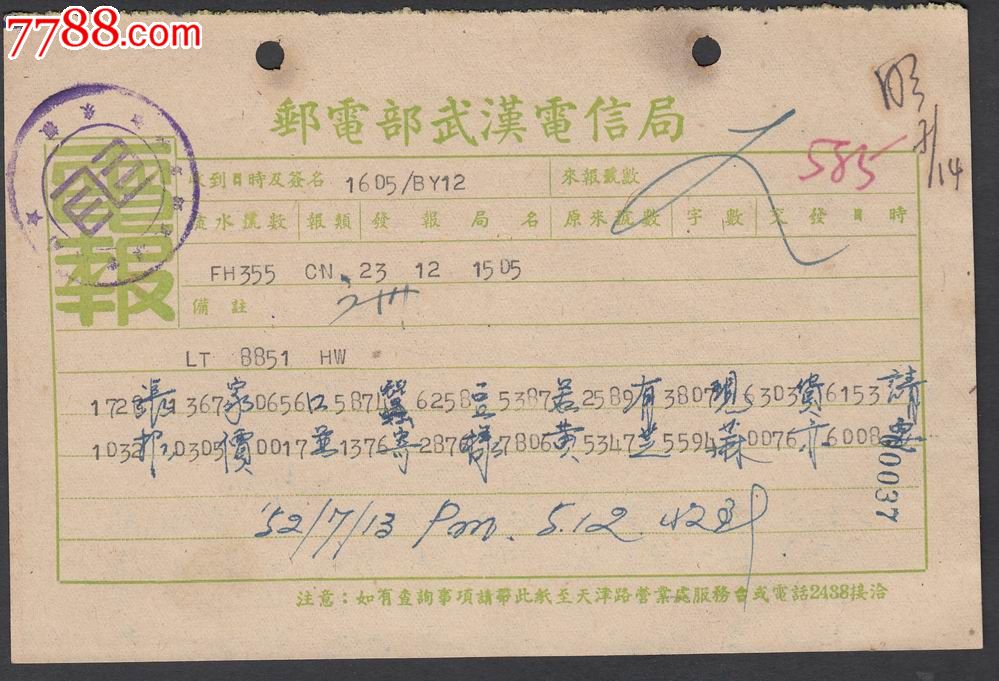 7788.com
郵電部武漢電信局
明
7/14
585
電報
收到日時及簽名 1605/BY12 來報號數
流水號數 報類 發報局名 原來號數 字數 交發日時
FH355 CN 23 12 1505
備註
LT 8851 HW
1728 張 367 家 0656 口 5871 蠶 6258 豆 5387 若 2589 有 3807 現 6303 貨 6153 請
1032 報 0305 價 0017 並 1376 寄 2876 樣 7806 黃 5347 芝 5594 蔴 0076 亦 6008 要
00037
'52/7/13 Pm. 5.12
注意：如有查詢事項請帶此紙至天津路營業處服務台或電話2438接洽